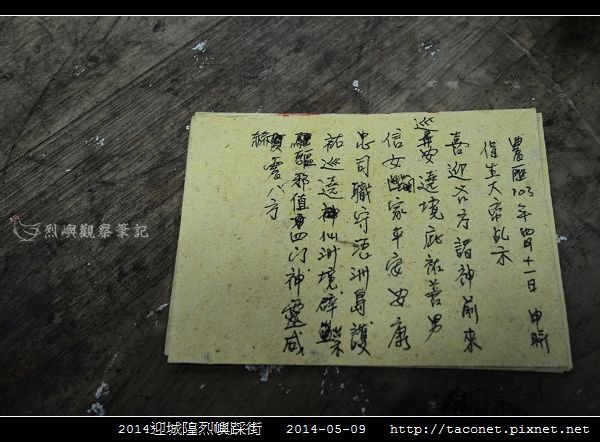 農曆103年四月十一日 申時
保生大帝乩示
喜迎各方諸神前來
巡安遶境庇祐善男
信女闔家平安安康
忠司職守浯洲島護
祐巡遶神仙洲境辟
驅邪值四門神靈威
震八方
烈嶼觀察筆記
2014迎城隍烈嶼踩街 2014-05-09 http://taconet.pixnet.net